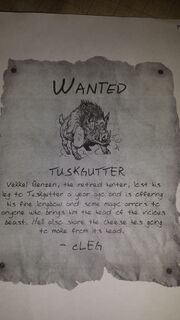 WANTED
TUSKGUTTER
Vekkel Benzen, the retired hunter, lost his
leg to Tuskgutter a year ago and is offering
his fine longbow and some magic arrows to
anyone who brings him the head of the vicious
beast. He'll also share the cheese he's going
to make from its head.
- CLEG